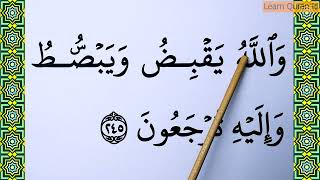 Learn Quran id
وَٱللَّهُ يَقۡبِضُ وَيَبۡصُۜطُ
وَإِلَيۡهِ تُرۡجَعُونَ ٢٤٥